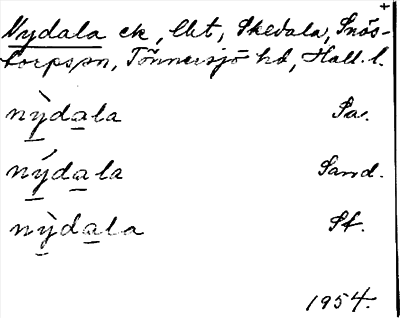 +
Nydala ck, Ebt, Skedala, Snös-
torpssn, Tönnersjö hd, Hall. l.
nỳdala Sa.
nýdala Sand.
nỳdala St.
1954.